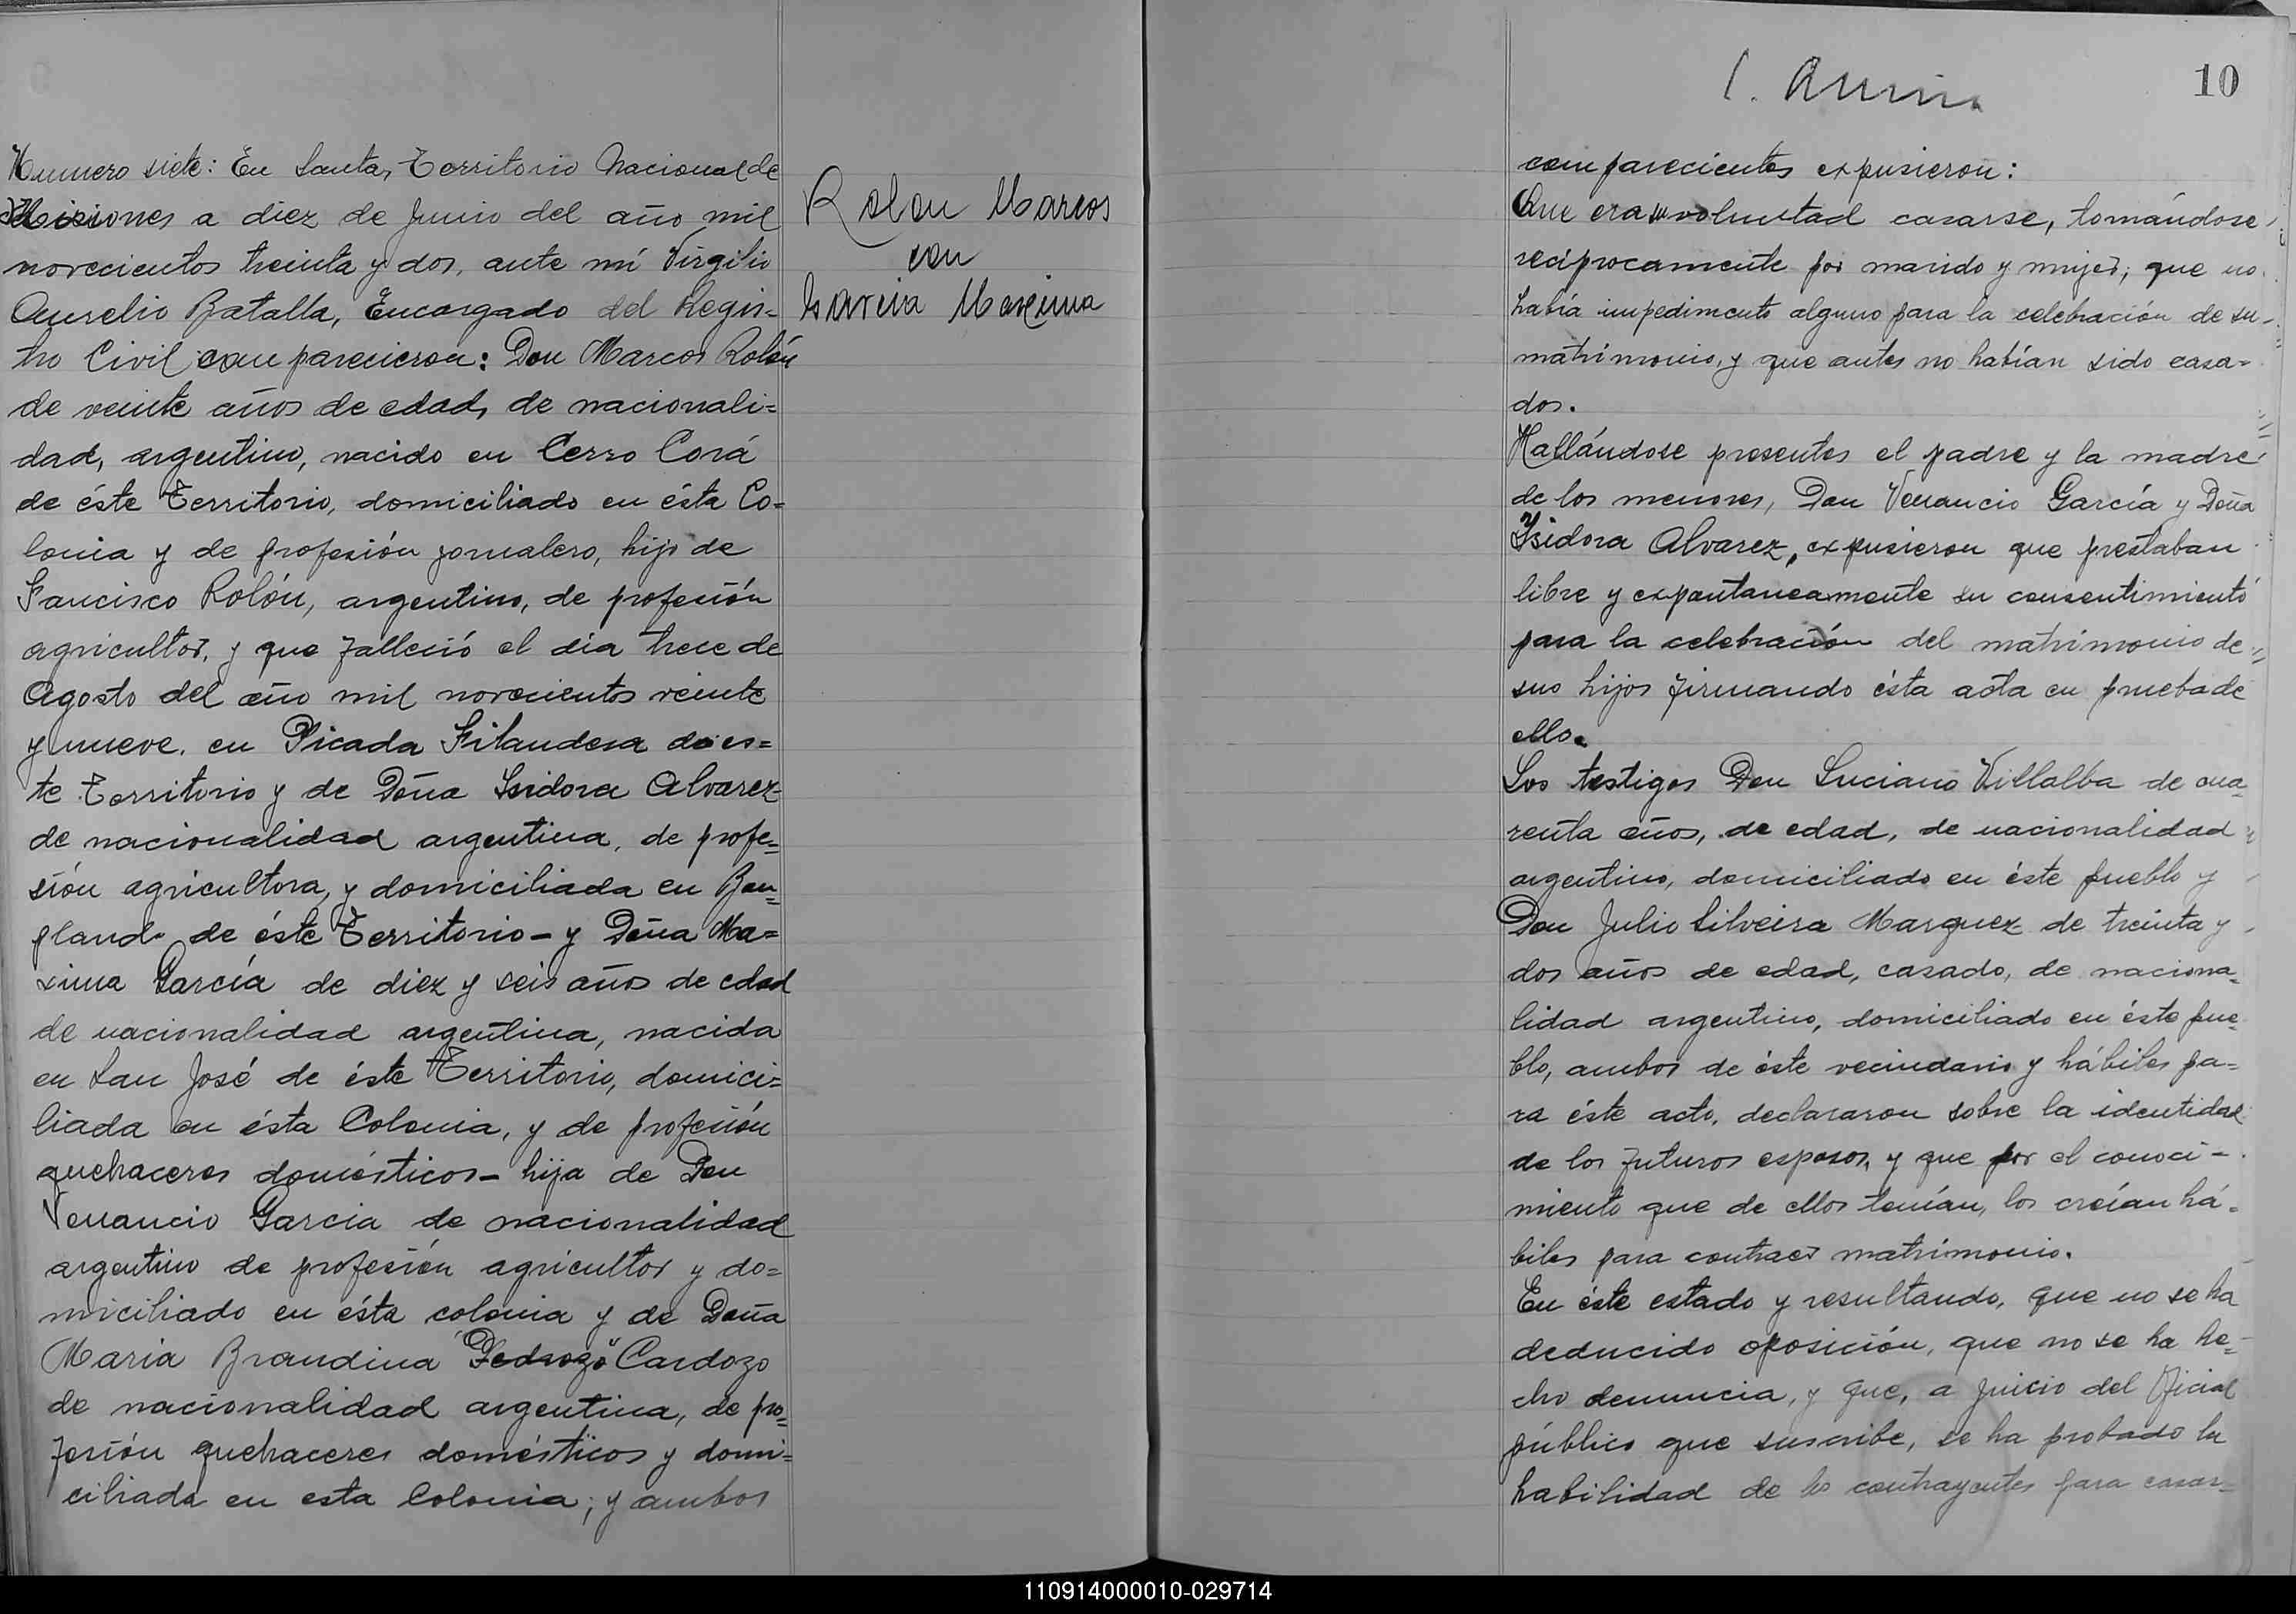 Numero siete: En Santa, Territorio Nacional de
Misiones a diez de Junio del año mil
novecientos treinta y dos, ante mí Virgilio
Aurelio Batalla, Encargado del Regis=
tro Civil comparecieron: Don Marcos Rolón
de veinte años de edad, de nacionali=
dad, argentino, nacido en Cerro Corá
de éste Territorio, domiciliado en ésta Co=
lonia y de profesión jornalero, hijo de
Francisco Rolón, argentino, de profesión
agricultor, y que falleció el día trece de
Agosto del año mil novecientos veinte
y nueve, en Picada Filandesa de es=
te Territorio y de Doña Isidora Alvarez
de nacionalidad argentina, de profe=
sión agricultora, y domiciliada en Bon=
pland de éste Territorio - y Doña Ma=
xima García de diez y seis años de edad
de nacionalidad argentina, nacida
en San José de éste Territorio, domici=
liada en ésta Colonia, y de profesión
quehaceres domésticos - hija de Don
Venancio Garcia de nacionalidad
argentino de profesión agricultor y do=
miciliado en ésta colonia y de Doña
Maria Brandina "Pedrozo" Cardozo
de nacionalidad argentina, de pro=
fesión quehaceres domésticos y domi=
ciliada en esta Colonia; y ambos
Rolon Marcos
con
Garcia Maxima
10
comparecientes expusieron:
Que era su voluntad casarse, tomándose
reciprocamente por marido y mujer; que no
había impedimento alguno para la celebración de su
matrimonio, y que antes no habían sido casa=
dos.
Hallándose presentes el padre y la madre
de los menores, Don Venancio García y Doña
Ysidora Alvarez, expusieron que prestaban
libre y expontaneamente su consentimiento
para la celebración del matrimonio de
sus hijos firmando ésta acta en prueba de
ello.
Los testigos Don Luciano Villalba de cua=
renta años, de edad, de nacionalidad
argentino, domiciliado en éste pueblo y
Don Julio Silveira Marquez de treinta y
dos años de edad, casado, de naciona=
lidad argentino, domiciliado en éste pue=
blo, ambos de éste vecindario y hábiles pa=
ra éste acto, declararon sobre la identidad
de los futuros esposos, y que por el conoci-
miento que de ellos tenían, los creían há=
biles para contraer matrimonio.
En éste estado y resultando, que no se ha
deducido oposición, que no se ha he=
cho denuncia, y que, a juicio del Oficial
público que suscribe, se ha probado la
habilidad de los contrayentes para casar=
110914000010-029714